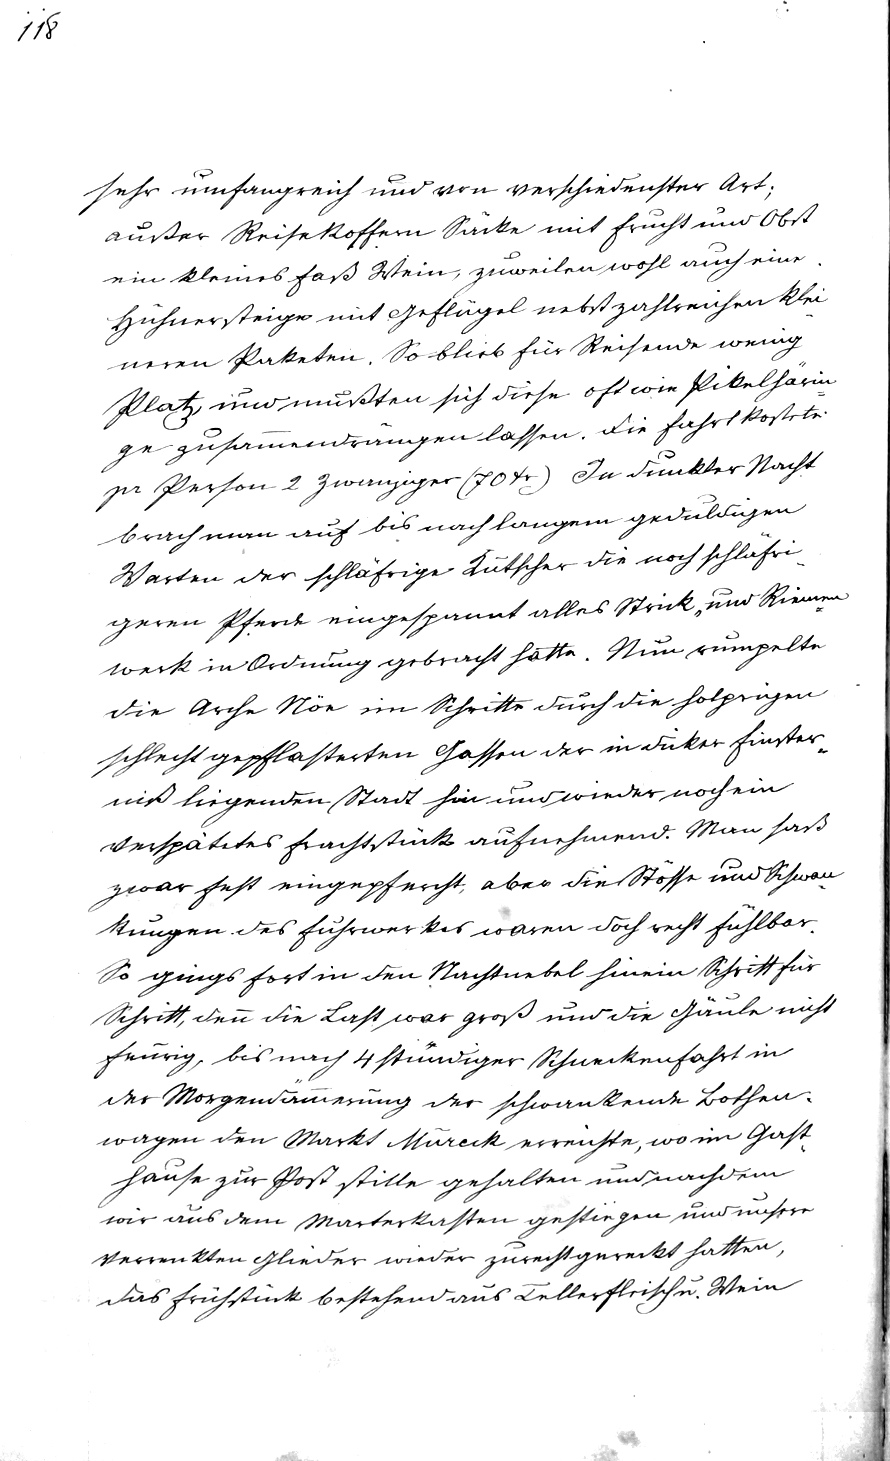 118
sehr umfangreich und von verschiedenster Art;
außer Reisekoffern Säcke mit Frucht und Obst
ein kleines Faß Wein, zuweilen wohl auch eine
Hühnersteige mit Geflügel nebst zahlreichen klei-
neren Paketen. So blieb für Reisende wenig
Platz, und mußten sich diese oft wie Pikelhärin-
ge zusam̄endrängen lassen. Die Fahrt kostete
pr Person 2 Zwanziger (70 kr) In dunkler Nacht
brach man auf bis nach langem geduldigen
Warten der schläfrige Kutscher die noch schläfri-
geren Pferde eingespannt alles Strick- und Riemen-
werk in Ordnung gebracht hatte. Nun rumpelte
die Arche Nöe im Schritte durch die holprigen
schlecht gepflasterten Gassen der in diker Finster-
niß liegenden Stadt hin und wieder noch ein
verspätetes Frachtstück aufnehmend. Man saß
zwar fest eingepfercht, aber die Stösse und Schwan-
kungen des Fuhrwerkes waren doch recht fühlbar.
So gings fort in den Nachtnebel hinein Schritt für
Schritt, den̄ die Last war groß und die Gäule nicht
feurig, bis nach 4 stündiger Schneckenfahrt in
der Morgendäm̄erung der schwankende Bothen-
wagen den Markt Mureck erreichte, wo im Gast-
hause zur Post stille gehalten und nachdem
wir aus dem Marterkasten gestiegen und unsere
verrenkten Glieder wieder zurechtgereckt hatten,
das Frühstück bestehend aus Tellerfleisch u. Wein